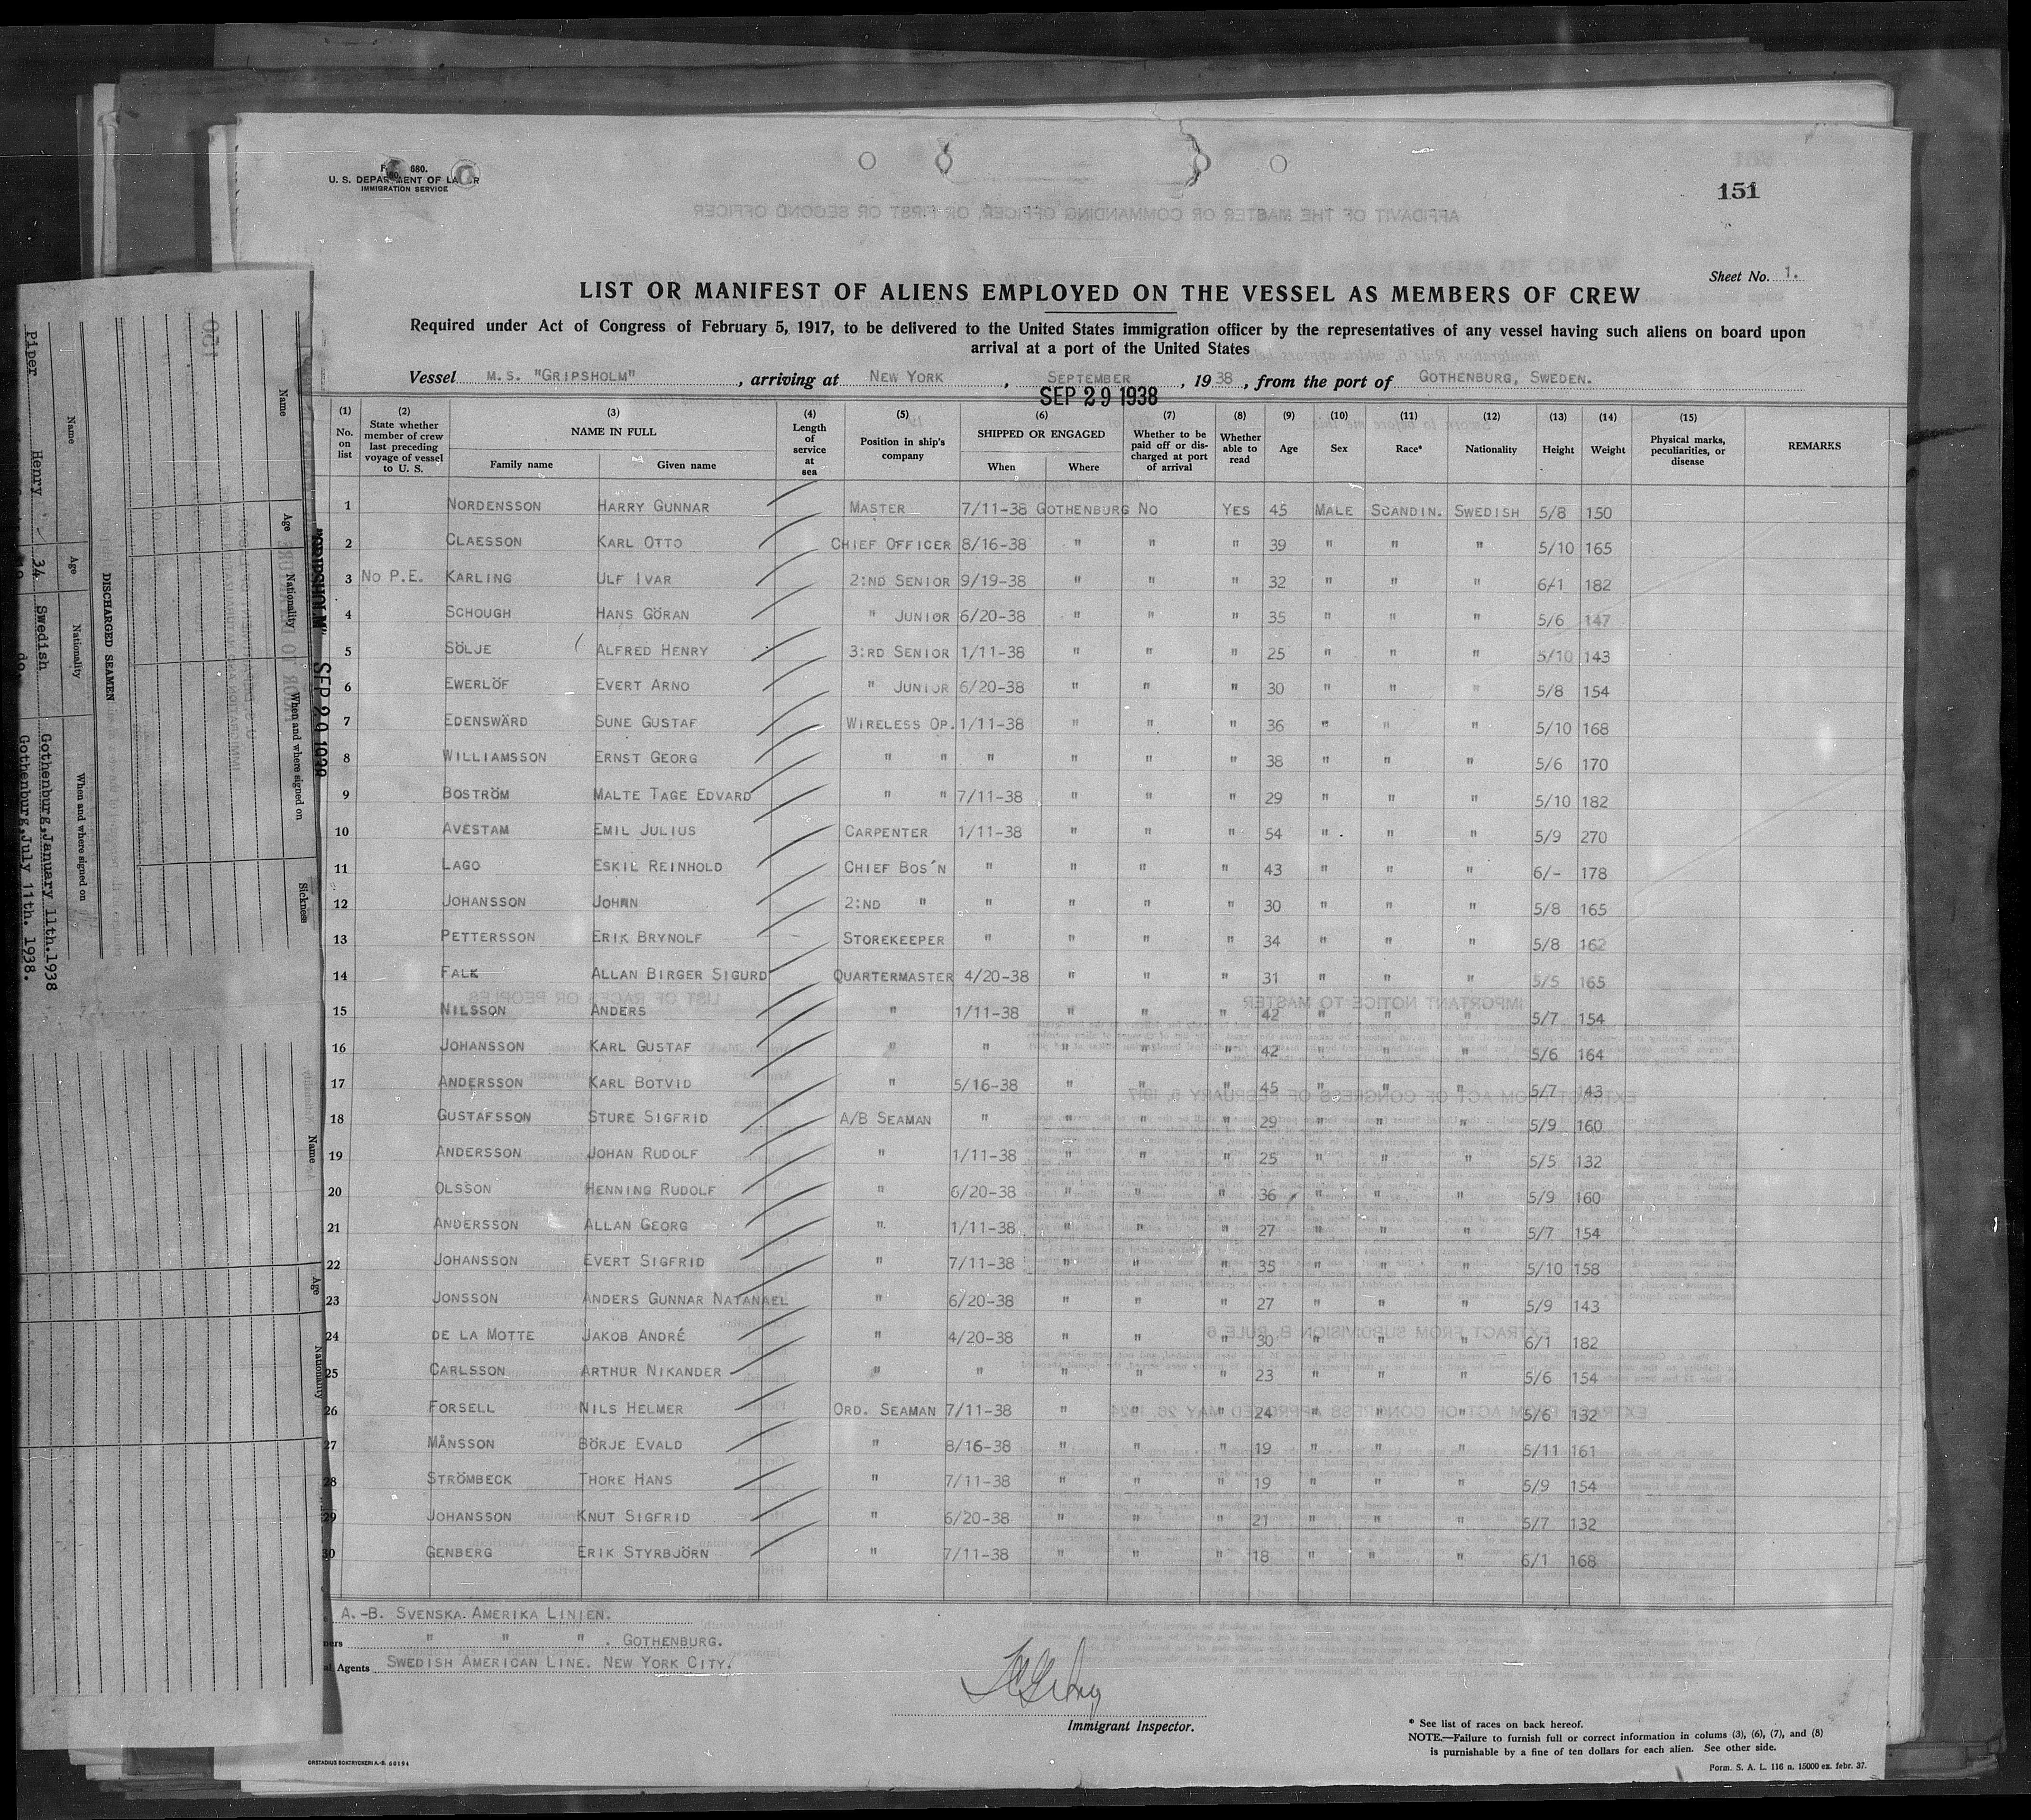 680.
U. S. DEPARTMENT OF LABOR
IMMIGRATION SERVICE
151
Sheet No. 1.
LIST OR MANIFEST OF ALIENS EMPLOYED ON THE VESSEL AS MEMBERS OF CREW
Required under Act of Congress of February 5, 1917, to be delivered to the United States immigration officer by the representatives of any vessel having such aliens on board upon
arrival at a port of the United States
Vessel M.S. "GRIPSHOLM", arriving at NEW YORK, SEPTEMBER, 1938, from the port of GOTHENBURG, SWEDEN.
SEP 29 1938
(1) (2) (3) (4) (5) (6) (7) (8) (9) (10) (11) (12) (13) (14) (15)
No. on list | State whether member of crew last preceding voyage of vessel to U. S. | NAME IN FULL | Length of service at sea | Position in ship's company | SHIPPED OR ENGAGED | Whether to be paid off or discharged at port of arrival | Whether able to read | Age | Sex | Race* | Nationality | Height | Weight | Physical marks, peculiarities, or disease | REMARKS
Family name | Given name | When | Where
1 NORDENSSON HARRY GUNNAR MASTER 7/11-38 GOTHENBURG NO YES 45 MALE SCANDIN. SWEDISH 5/8 150
2 CLAESSON KARL OTTO CHIEF OFFICER 8/16-38 " " " 39 " " " 5/10 165
3 NO P.E. KARLING ULF IVAR 2:ND SENIOR 9/19-38 " " " 32 " " " 6/1 182
4 SCHOUGH HANS GÖRAN " JUNIOR 6/20-38 " " " 35 " " " 5/6 147
5 SÖLJE ALFRED HENRY 3:RD SENIOR 1/11-38 " " " 25 " " " 5/10 143
6 EWERLÖF EVERT ARNO " JUNIOR 6/20-38 " " " 30 " " " 5/8 154
7 EDENSWÄRD SUNE GUSTAF WIRELESS OP. 1/11-38 " " " 36 " " " 5/10 168
8 WILLIAMSSON ERNST GEORG " " " " " " 38 " " " 5/6 170
9 BOSTRÖM MALTE TAGE EDVARD " " 7/11-38 " " " 29 " " " 5/10 182
10 AVESTAM EMIL JULIUS CARPENTER 1/11-38 " " " 54 " " " 5/9 270
11 LAGO ESKIL REINHOLD CHIEF BOS'N " " " " 43 " " " 6/- 178
12 JOHANSSON JOHAN 2:ND " " " " " 30 " " " 5/8 165
13 PETTERSSON ERIK BRYNOLF STOREKEEPER " " " " 34 " " " 5/8 162
14 FALK ALLAN BIRGER SIGURD QUARTERMASTER 4/20-38 " " " 31 " " " 5/5 165
15 NILSSON ANDERS " 1/11-38 " " " 42 " " " 5/7 154
16 JOHANSSON KARL GUSTAF " " " " " 42 " " " 5/6 164
17 ANDERSSON KARL BOTVID " 5/16-38 " " " 45 " " " 5/7 143
18 GUSTAFSSON STURE SIGFRID A/B SEAMAN " " " " 29 " " " 5/9 160
19 ANDERSSON JOHAN RUDOLF " 1/11-38 " " " 25 " " " 5/5 132
20 OLSSON HENNING RUDOLF " 6/20-38 " " " 36 " " " 5/9 160
21 ANDERSSON ALLAN GEORG " 1/11-38 " " " 27 " " " 5/7 154
22 JOHANSSON EVERT SIGFRID " 7/11-38 " " " 35 " " " 5/10 158
23 JONSSON ANDERS GUNNAR NATANAEL " 6/20-38 " " " 27 " " " 5/9 143
24 DE LA MOTTE JAKOB ANDRÉ " 4/20-38 " " " 30 " " " 6/1 182
25 CARLSSON ARTHUR NIKANDER " " " " " 23 " " " 5/6 154
26 FORSELL NILS HELMER ORD. SEAMAN 7/11-38 " " " 24 " " " 5/6 132
27 MÅNSSON BÖRJE EVALD " 8/16-38 " " " 19 " " " 5/11 161
28 STRÖMBECK THORE HANS " 7/11-38 " " " 19 " " " 5/9 154
29 JOHANSSON KNUT SIGFRID " 6/20-38 " " " 21 " " " 5/7 132
30 GENBERG ERIK STYRBJÖRN " 7/11-38 " " " 18 " " " 6/1 168
A.-B. SVENSKA AMERIKA LINIEN.
ners " " " . GOTHENBURG.
al Agents SWEDISH AMERICAN LINE. NEW YORK CITY.
Immigrant Inspector.
* See list of races on back hereof.
NOTE.—Failure to furnish full or correct information in colums (3), (6), (7), and (8)
is punishable by a fine of ten dollars for each alien. See other side.
Form. S. A. L. 116 n. 15000 ex. febr. 37.
ORSTADIUS BOKTRYCKERI A.-B. 60194
"GRIPSHOLM" SEP 29 1938
150
Name Age Nationality When and where signed on Sickness
DISCHARGED SEAMEN
Name Age Nationality When and where signed on
Piper Henry 34 Swedish Gothenburg,January 11th.1938
do. Gothenburg,July 11th. 1938.
Name Age Nationality